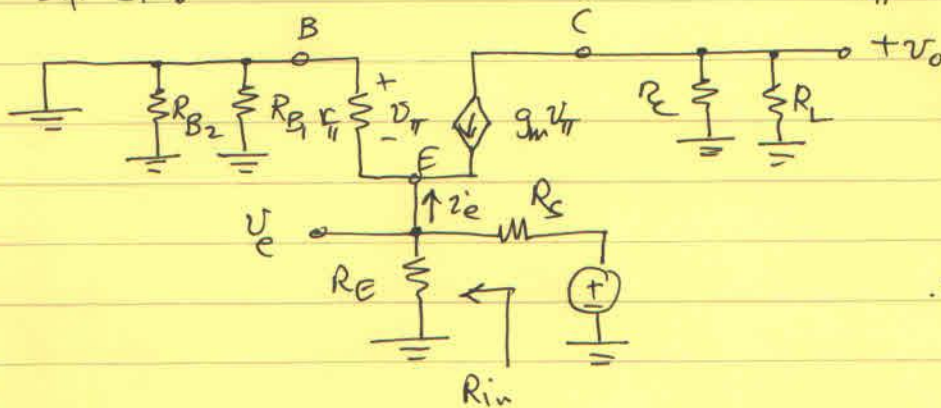 B
C
+v₀
R_B2
R_B1
r_π
+
v_π
-
g_m v_π
R_C
R_L
E
i_e
R_S
v_e
R_E
+
R_in